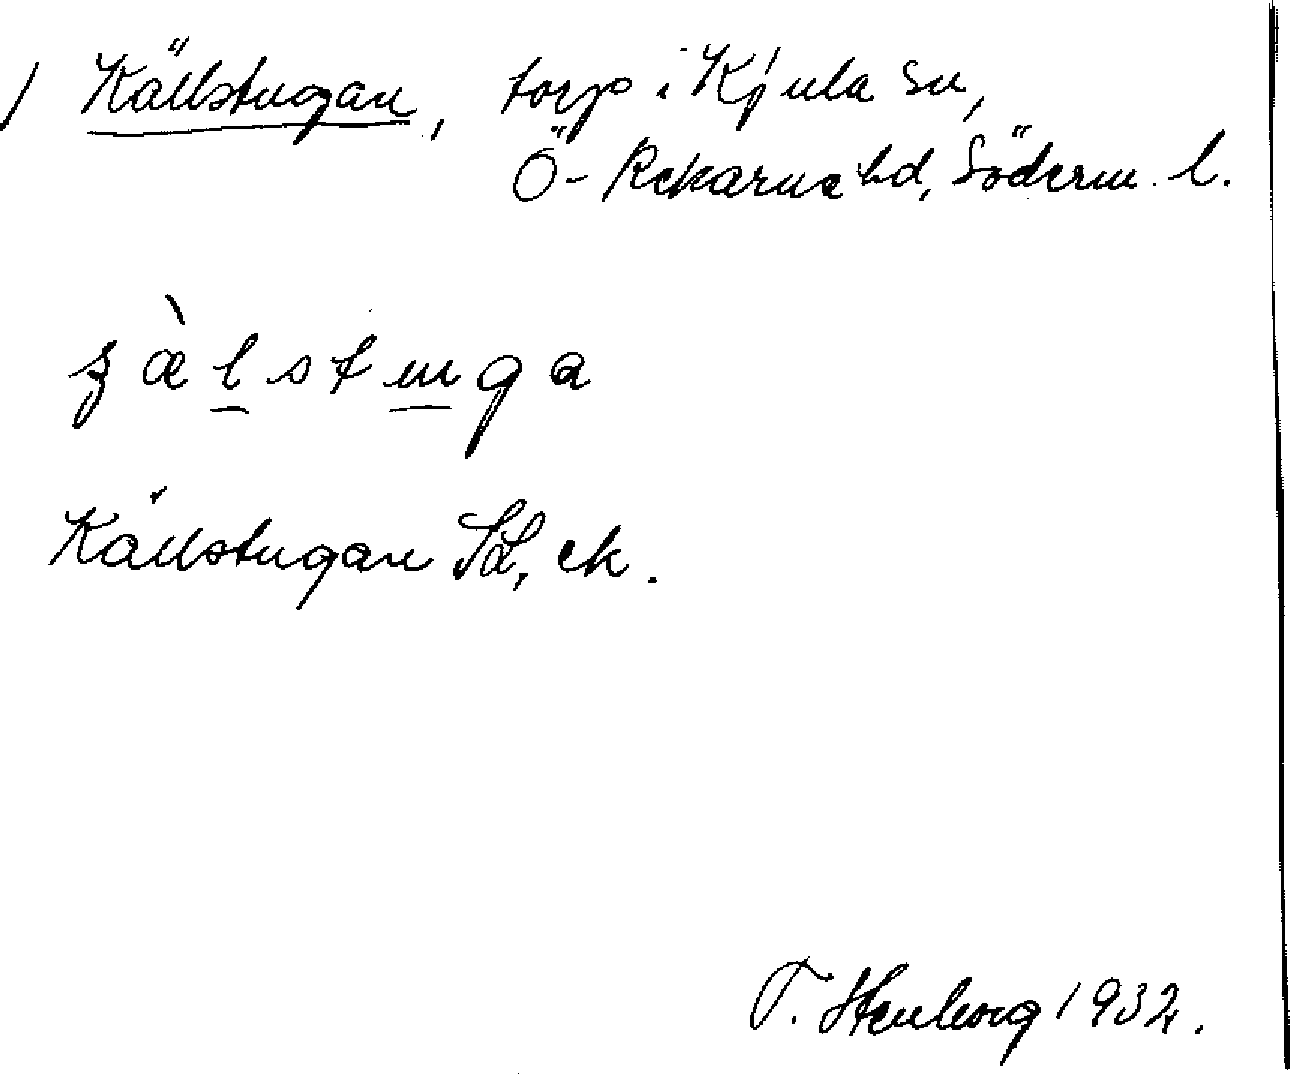 / Källstugan, torp i Kjula sn,
Ö-Rekarne hd, Söderm. l.
Källstugan SL, ek.
T. Stenborg 1932.